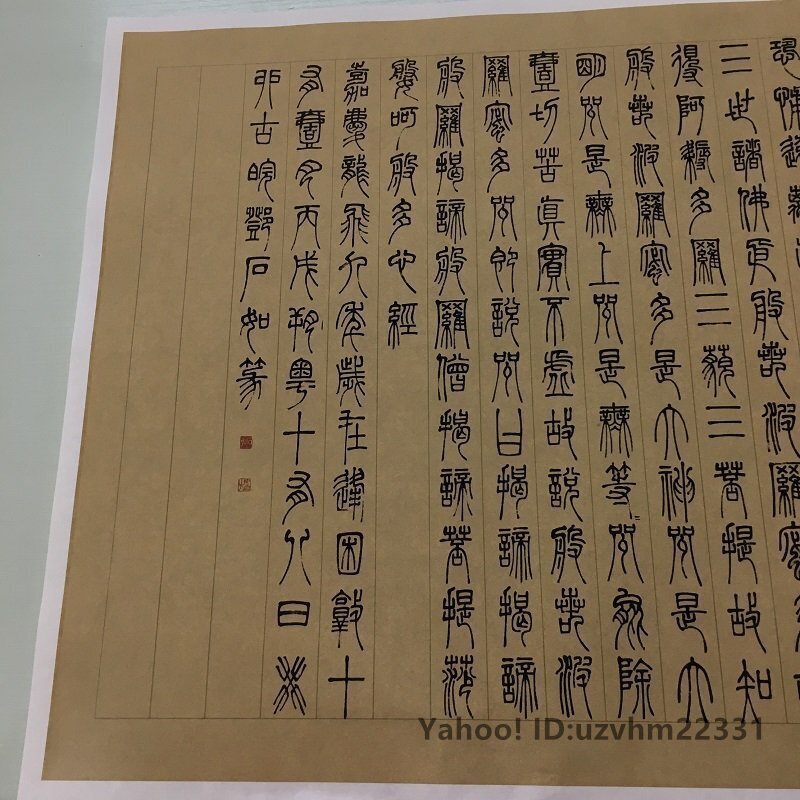 恐怖遠離
三世諸佛依般若波羅蜜多故
得阿耨多羅三藐三菩提故知
般若波羅蜜多是大神咒是大
明咒是無上咒是無等〻咒能除
壹切苦真實不虛故說般若波
羅蜜多咒即說咒曰揭諦揭諦
般羅揭諦般羅僧揭諦菩提莎
婆呵般多心經
嘉慶龍飛九年歲在逢困敦十
有壹月丙戌朔粵十有八日癸
卯古皖鄧石如篆
Yahoo! ID:uzvhm22331